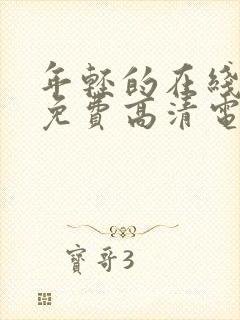 年轻的在线
免费高清电
寶哥3